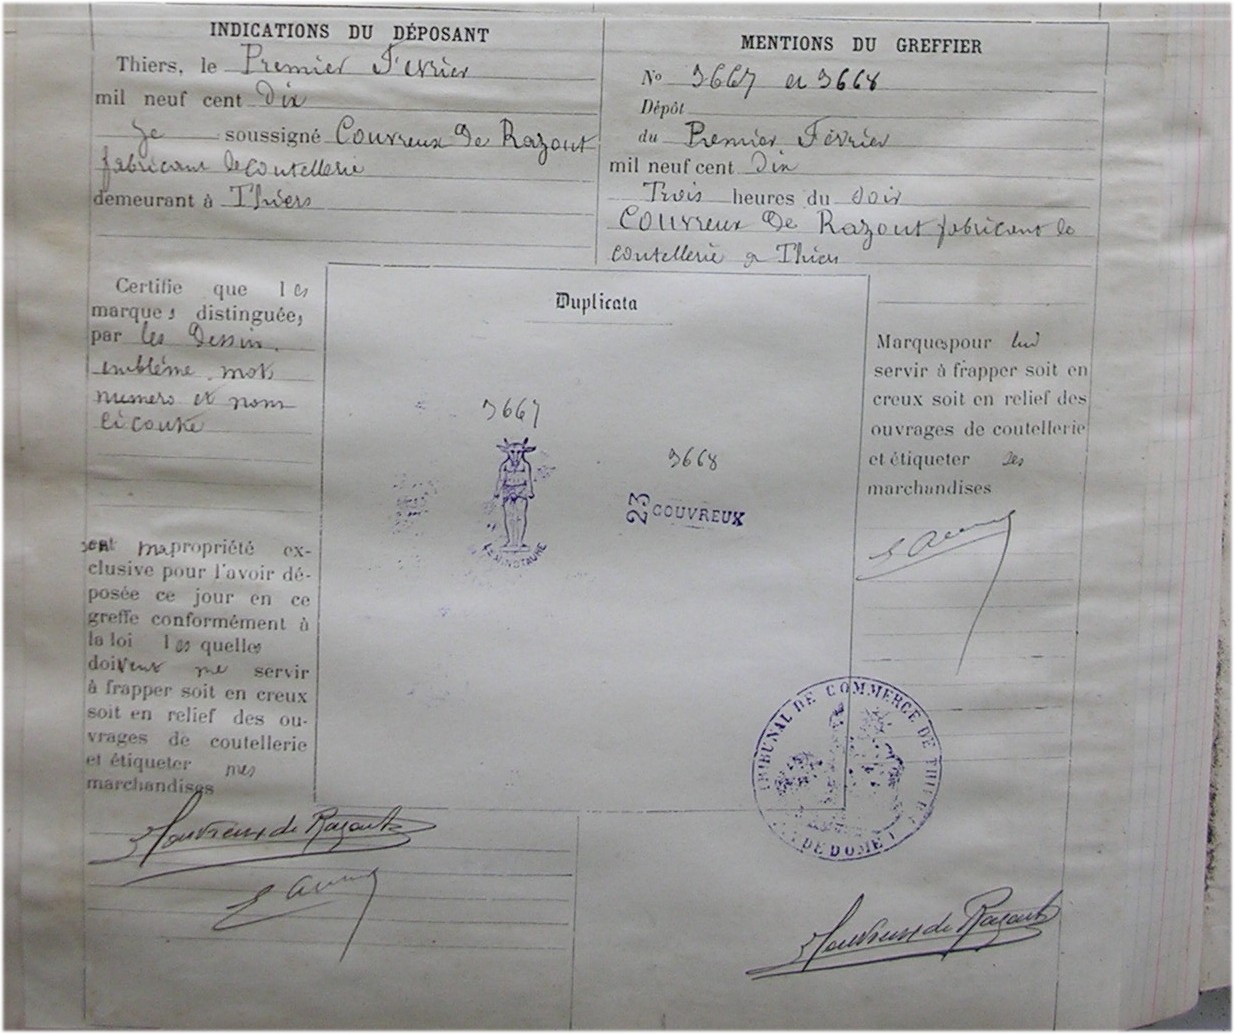 INDICATIONS DU DÉPOSANT
Thiers, le Premier Février
mil neuf cent Dix
Je soussigné Couvreux De Razout
fabricant de coutellerie
demeurant à Thiers
Certifie que les
marques distinguées
par les Dessin,
emblème, mot,
numero et nom
ci contre
sont ma propriété ex-
clusive pour l'avoir dé-
posée ce jour en ce
greffe conformément à
la loi lesquelles
doivent me servir
à frapper soit en creux
soit en relief des ou-
vrages de coutellerie
et étiqueter mes
marchandises
Couvreux de Razout
MENTIONS DU GREFFIER
No 3667 et 3668
Dépôt
du Premier Février
mil neuf cent Dix
Trois heures du soir
Couvreux De Razout fabricant de
coutellerie a Thiers
Duplicata
3667
LE MINOTAURE
3668
23 COUVREUX
Marques pour lui
servir à frapper soit en
creux soit en relief des
ouvrages de coutellerie
et étiqueter ses
marchandises
TRIBUNAL DE COMMERCE DE THIERS
DE DOME
Couvreux de Razout